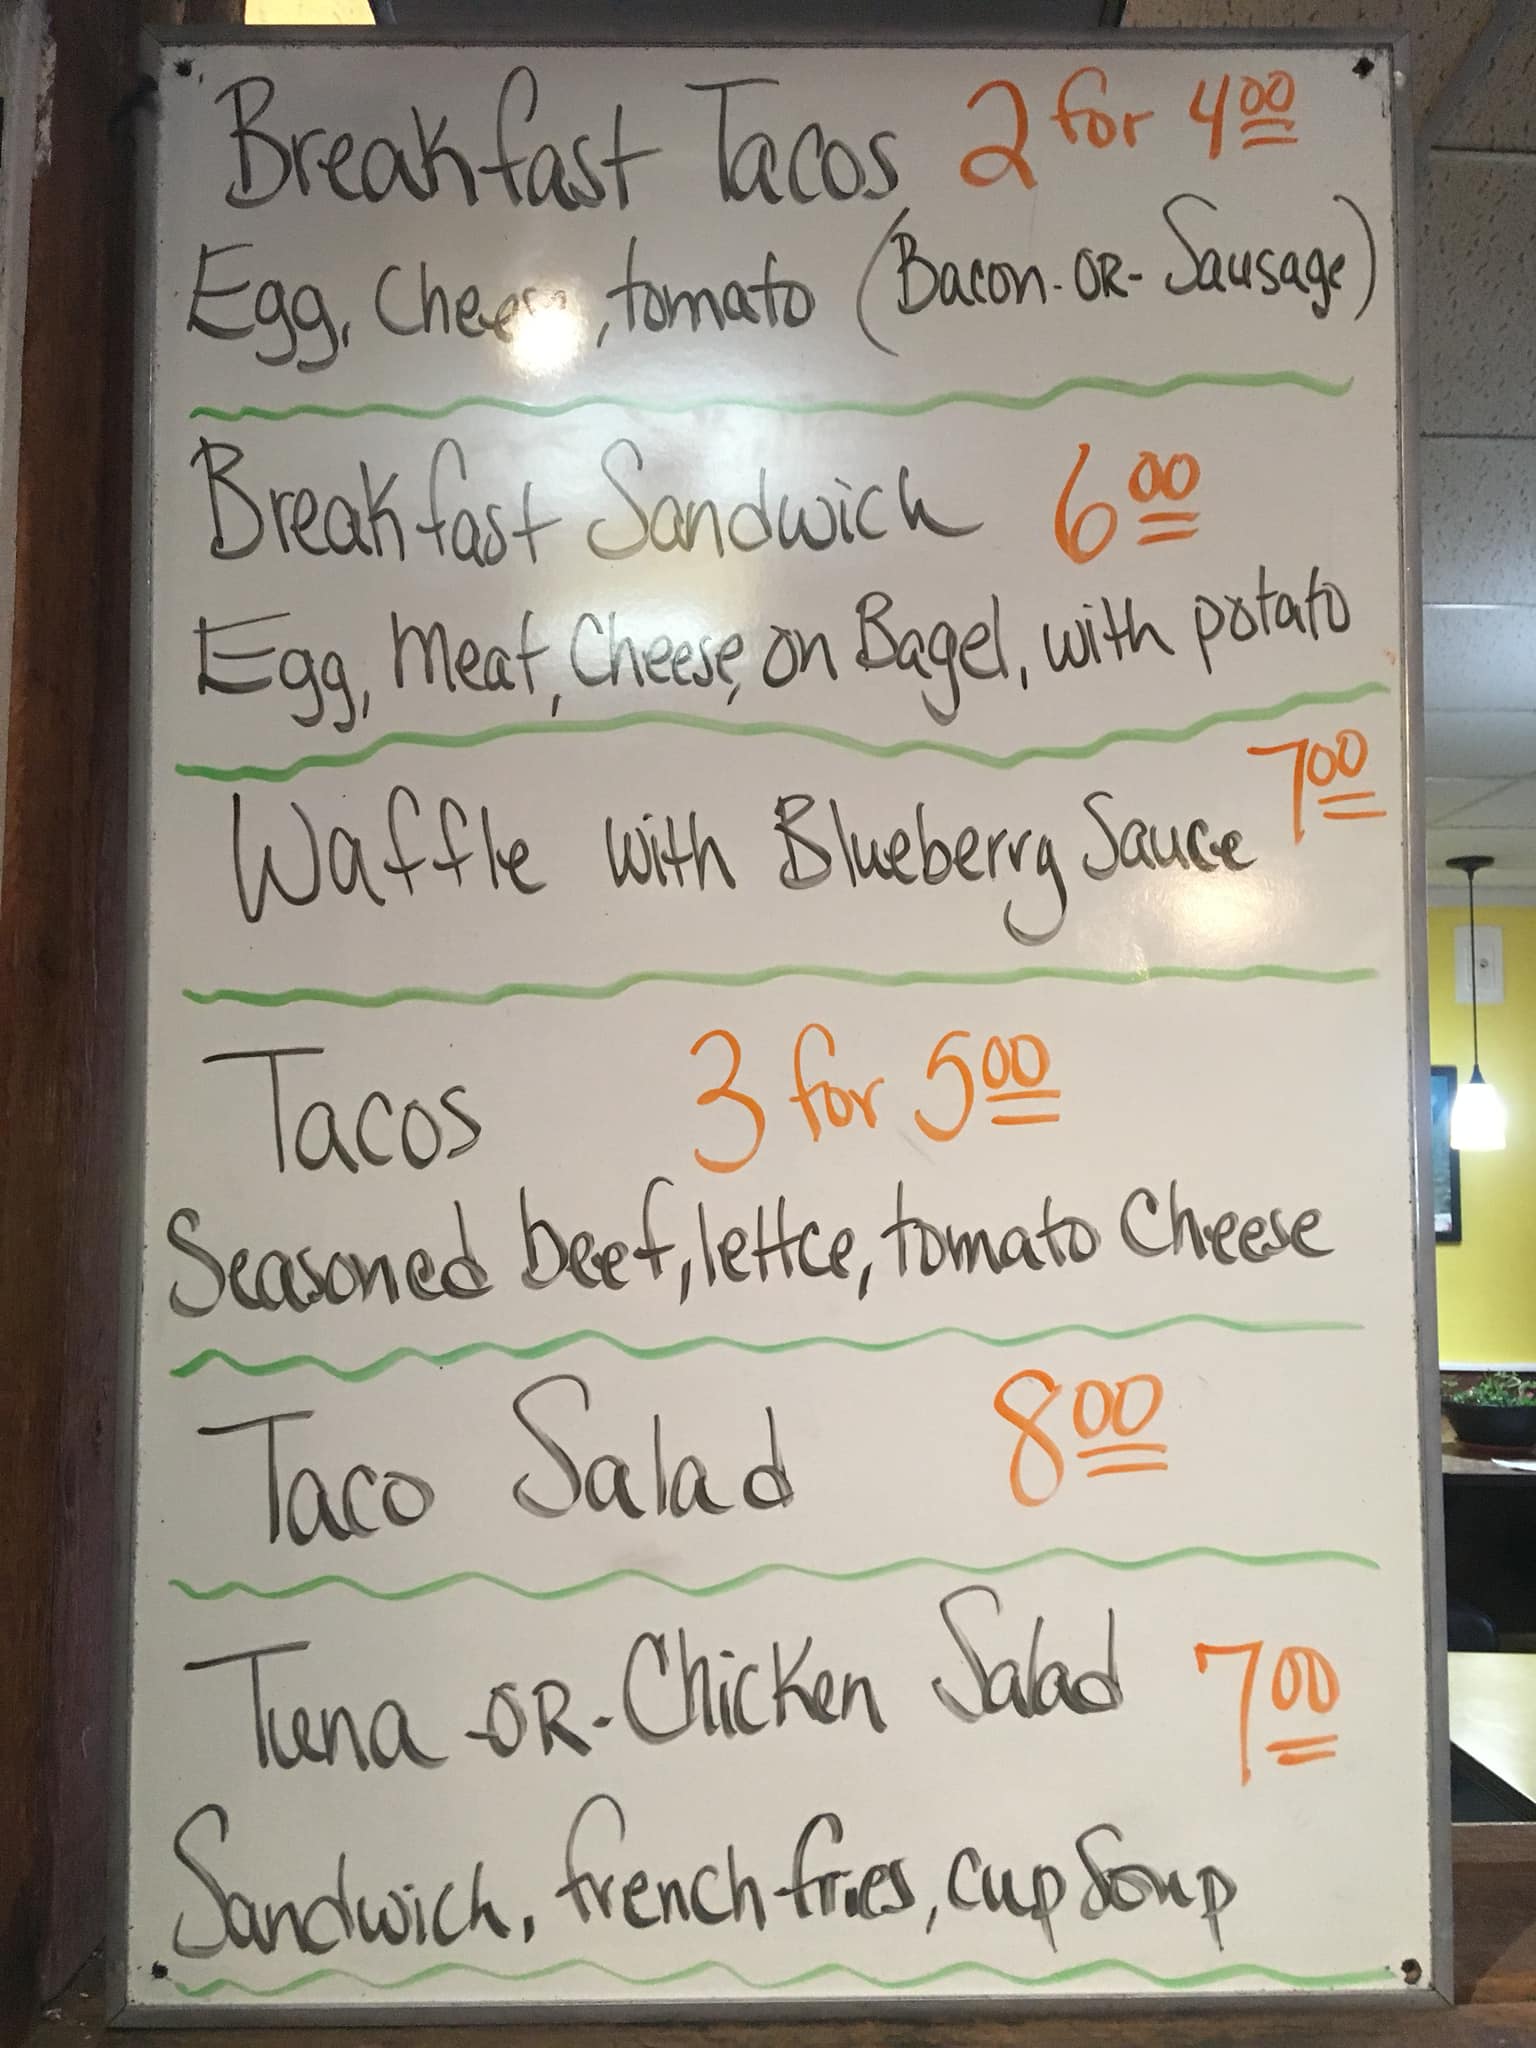 Breakfast Tacos 2 for 4.00
Egg, Cheese, tomato (Bacon-OR-Sausage)
Breakfast Sandwich 6.00
Egg, Meat, Cheese, on Bagel, with potato
Waffle with Blueberry Sauce 7.00
Tacos 3 for 5.00
Seasoned beef, lettce, tomato Cheese
Taco Salad 8.00
Tuna -OR- Chicken Salad 7.00
Sandwich, french fries, cup Soup